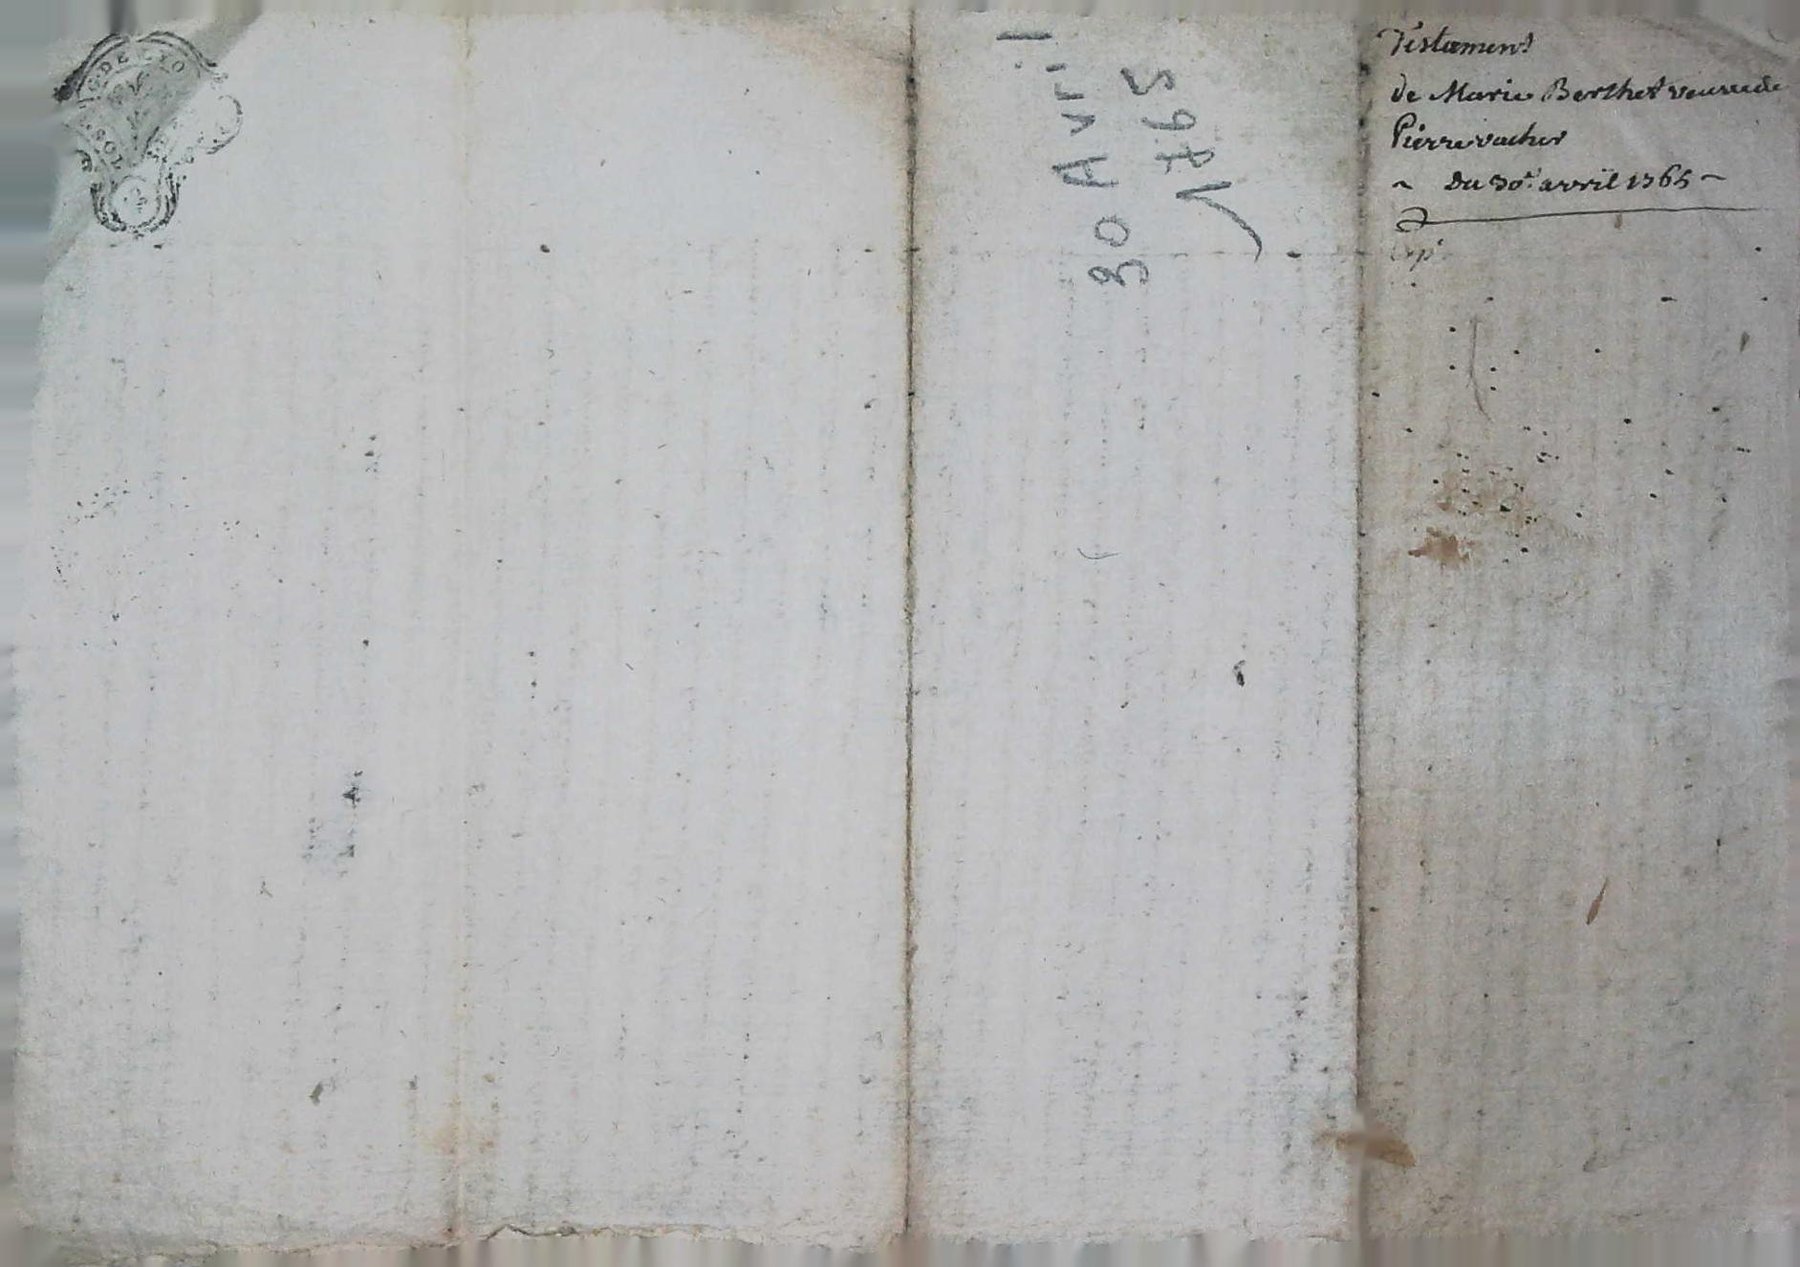 DE LYO
30 Avril
1765
Testament
de Marie Berthet veuve de
Pierre vacher
~ Du 30e. avril 1765 ~
Exp.